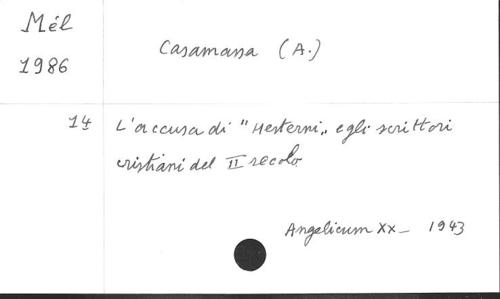 Mél
1986
Casamassa (A.)
14
L'accusa di "Hesterni„ e gli scrittori
cristiani del II secolo
Angelicum XX_ 1943